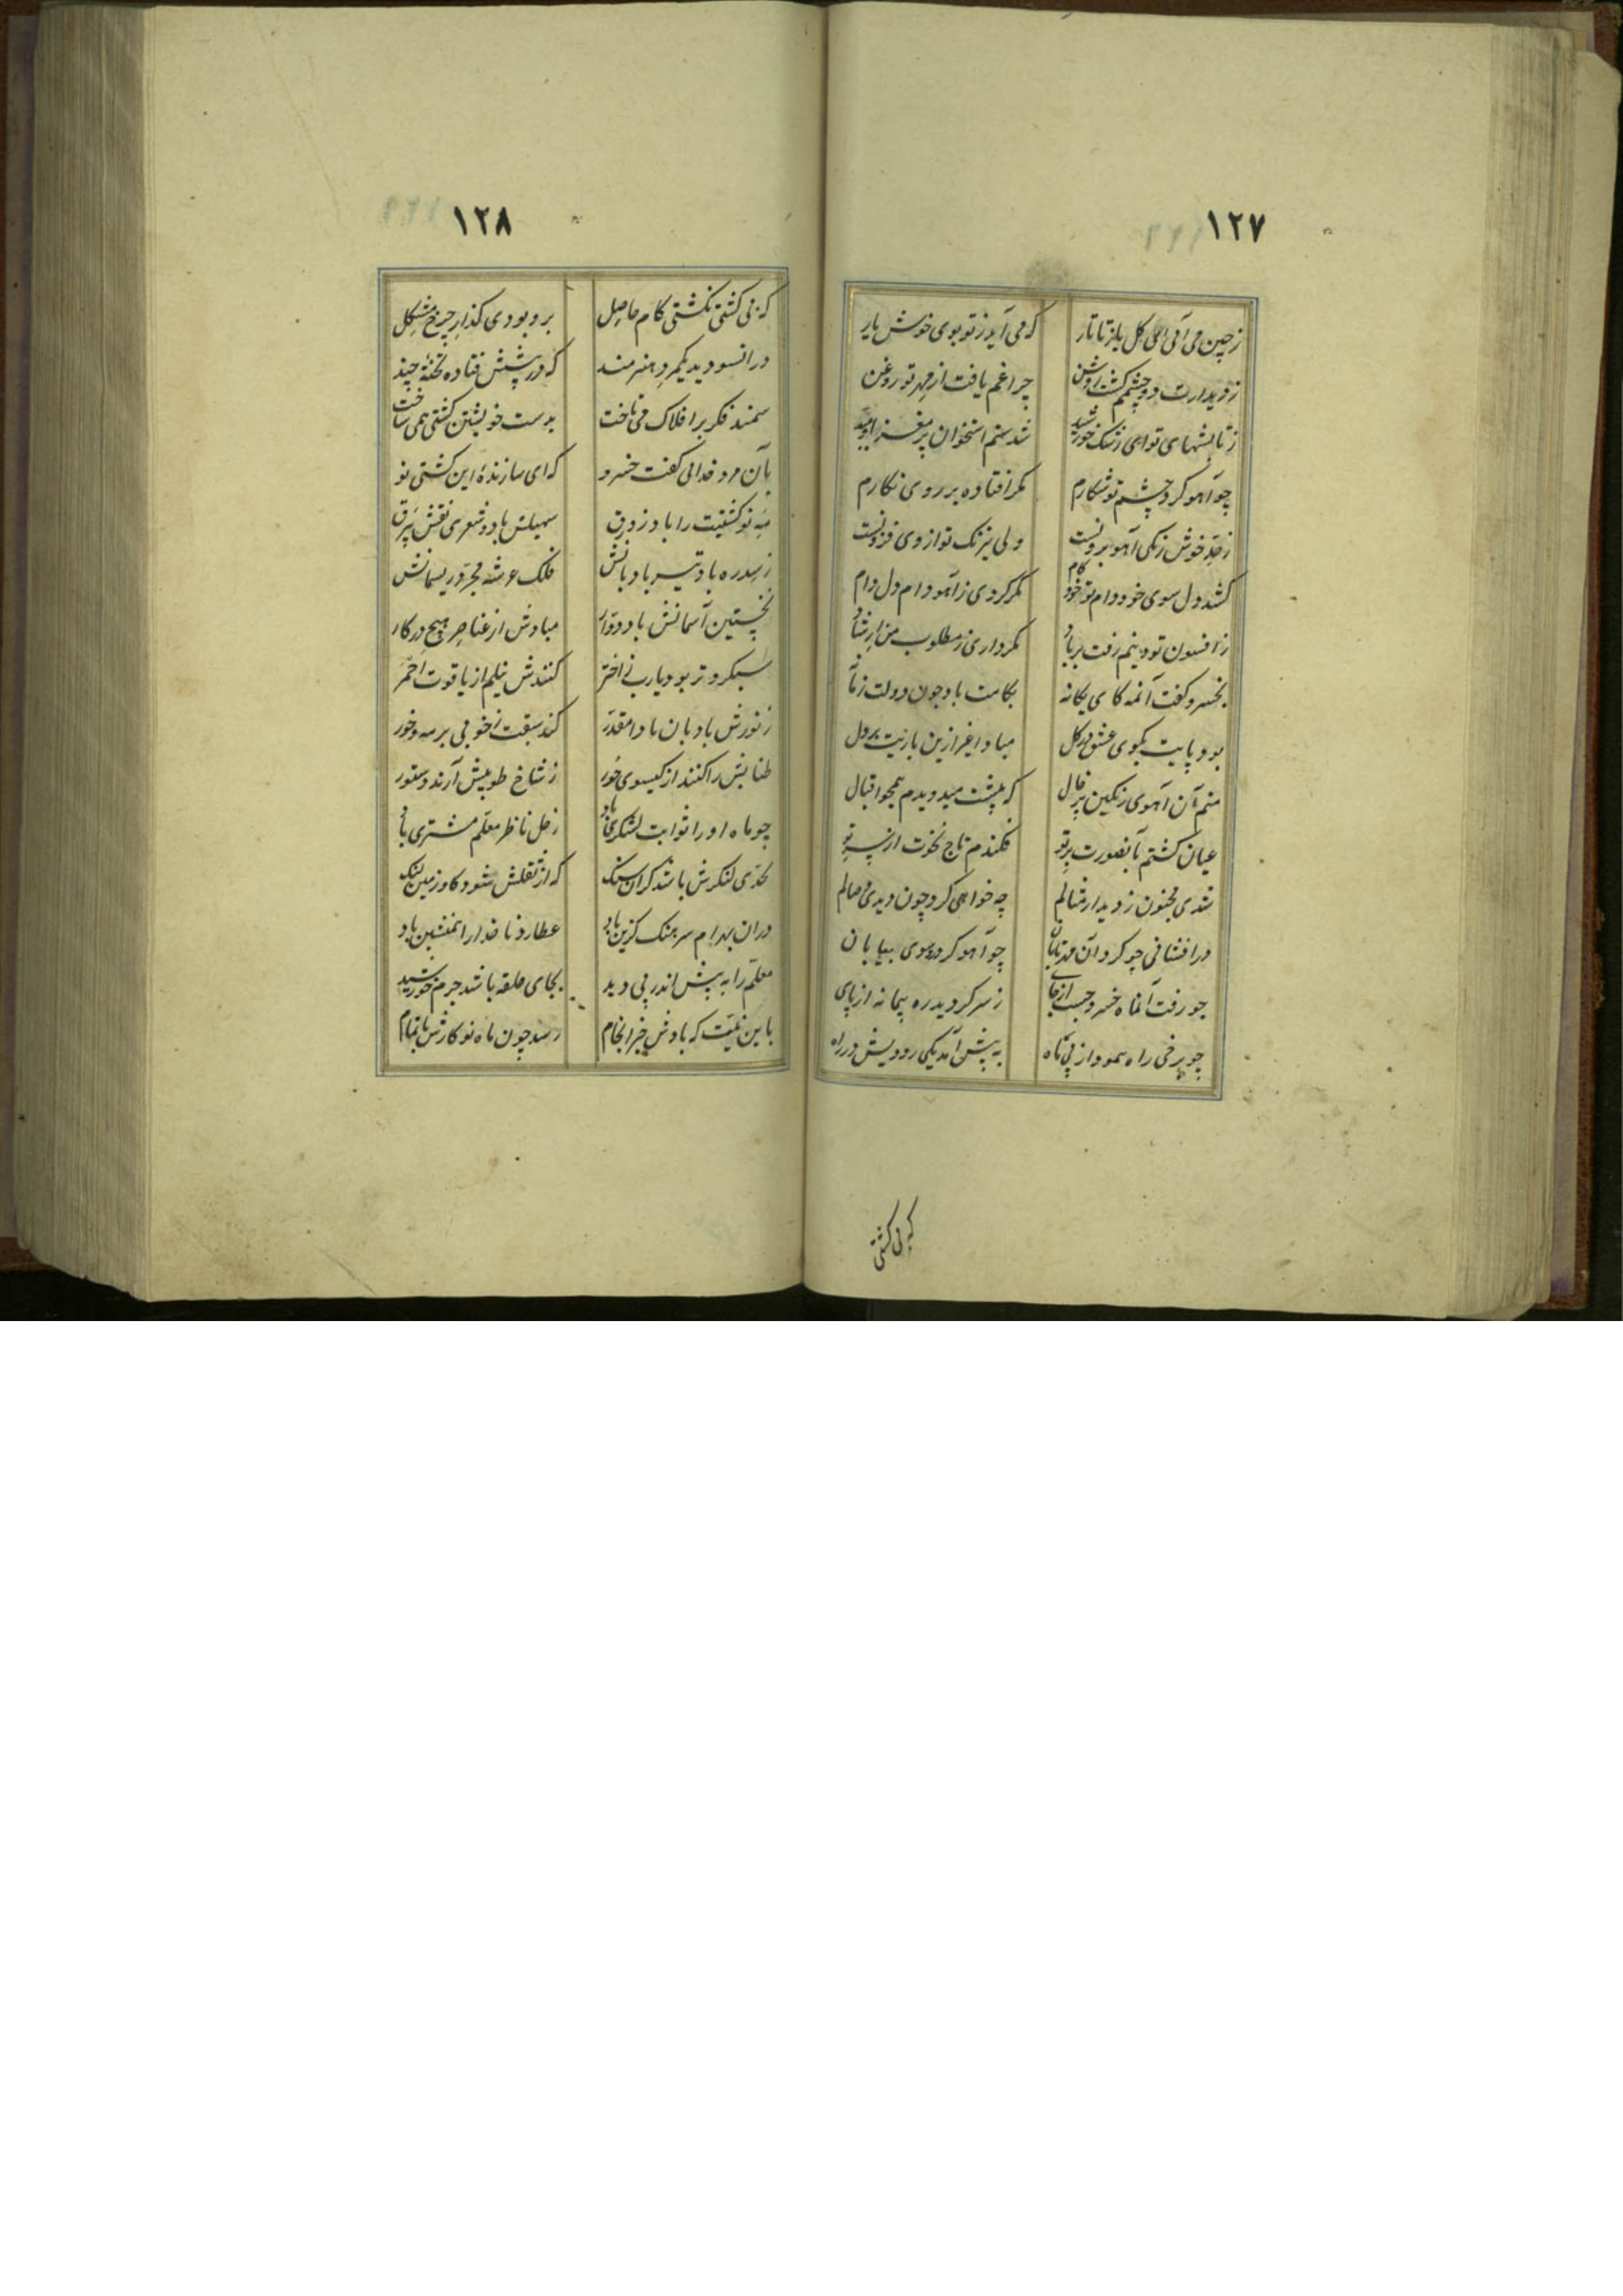 ۱۲۷
زچین می آئی ای کل یا زتاتار که می آید زتو بوی خوش یار
زدیدارت دو چشمم کشت روشن چراغم یافت از مهر تو روغن
زتابشهای تو ای رشک خورشید شدستم استخوان پر مغز امید
چو آهو کرد چشم تو شکارم مکر افتاده بر روی نکارم
خوش زنکی آهو برونست ولی نیرنک تو از وی فزونست
کشد دل سوی خود دام تو خود کام مکر کردی ز آهو وام دل دام
ز افسون تو دینم رفت بر باد مکر داری ز مطلوب من ارشاد
بخسرو کفت آنمه کای یکانه بکامت باد چون دولت زمانه
بود پایت بکوی عشق در کل مبادا غیر ازین بارنیت بر دل
منم آن آهوی رنکین پر خال که پیشت میدویدم همچو اقبال
عیان کشتم بآنصورت بر تو فکندم تاج نخوت از سر تو
شدی مجنون ز دیدار مثالم چه خواهی کرد چون دیدی جمالم
درافشانی چو کرد آن مه تابان چو آهو کرد رو سوی بیابان
چو رفت آنماه خسرو جست از جای ز سر کردید ره پیما نه از پای
چو برخی راه پیمود از پی ماه به پیش آمد یکی رودیش در راه
که بی کشتی
۱۲۸
که بی کشتی نکشتی کام حاصل برو بودی کذار چرخ مشکل
در انسو دید یکمرد هنرمند که در پیشش فتاده تختهٔ چند
سمند فکر بر افلاک می تاخت بدست خویشتن کشتی همی ساخت
بآن مرد خدائی کفت خسرو که ای سازندهٔ این کشتی نو
مه نو کشتیت را باد زورق سهیلش باد و شعری نقش بیرق
ز سدره باد تیر بادبانش فلک عرشه مجره ریسمانش
نخستین آسمانش باد دوار مبادش از عناصر هیچ در کار
سبکروتر بود یارب ز اختر کنندش نیلم از یاقوت احمر
ز نورش بادبان بادا مقدر کند سبقت ز خوبی بر مه و خور
طنابش را کنند از کیسوی حور ز شاخ طوبیش آرند دستور
چو ماه او را ثوابت لشکری باد زحل ناظر معلم مشتری باد
بحدی لنکرش باشد کران سنک که از ثقلش شود کاو زمین لنک
در ان بهرام سرهنک کزین باد عطارد ناخدا را همنشین باد
معلم را به پیش اندر پی دید بجای حلقه باشد جرم خورشید
باین نیت که بادش خیر انجام رسد چون ماه نو کارش باتمام